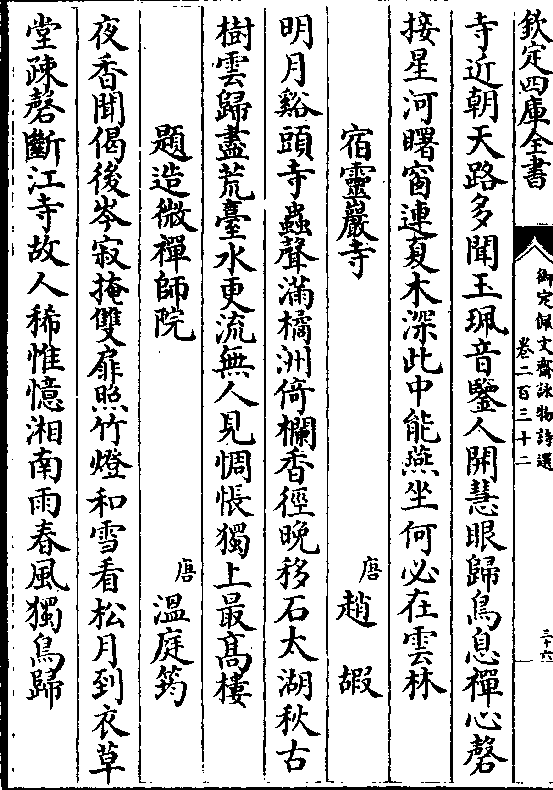 欽定四庫全書
御定佩文齋詠物詩選
卷二百三十二
三十六
寺近朝天路多聞玉珮音鑒人開慧眼歸鳥息禪心磬
接星河曙窗連夏木深此中能燕坐何必在雲林
宿靈巖寺
唐 趙嘏
明月谿頭寺蟲聲滿橘洲倚欄香徑晚移石太湖秋古
樹雲歸盡荒臺水更流無人見惆悵獨上最高樓
題造微禪師院
唐 溫庭筠
夜香聞偈後岑寂掩雙扉照竹燈和雪看松月到衣草
堂疎磬斷江寺故人稀惟憶湘南雨春風獨鳥歸